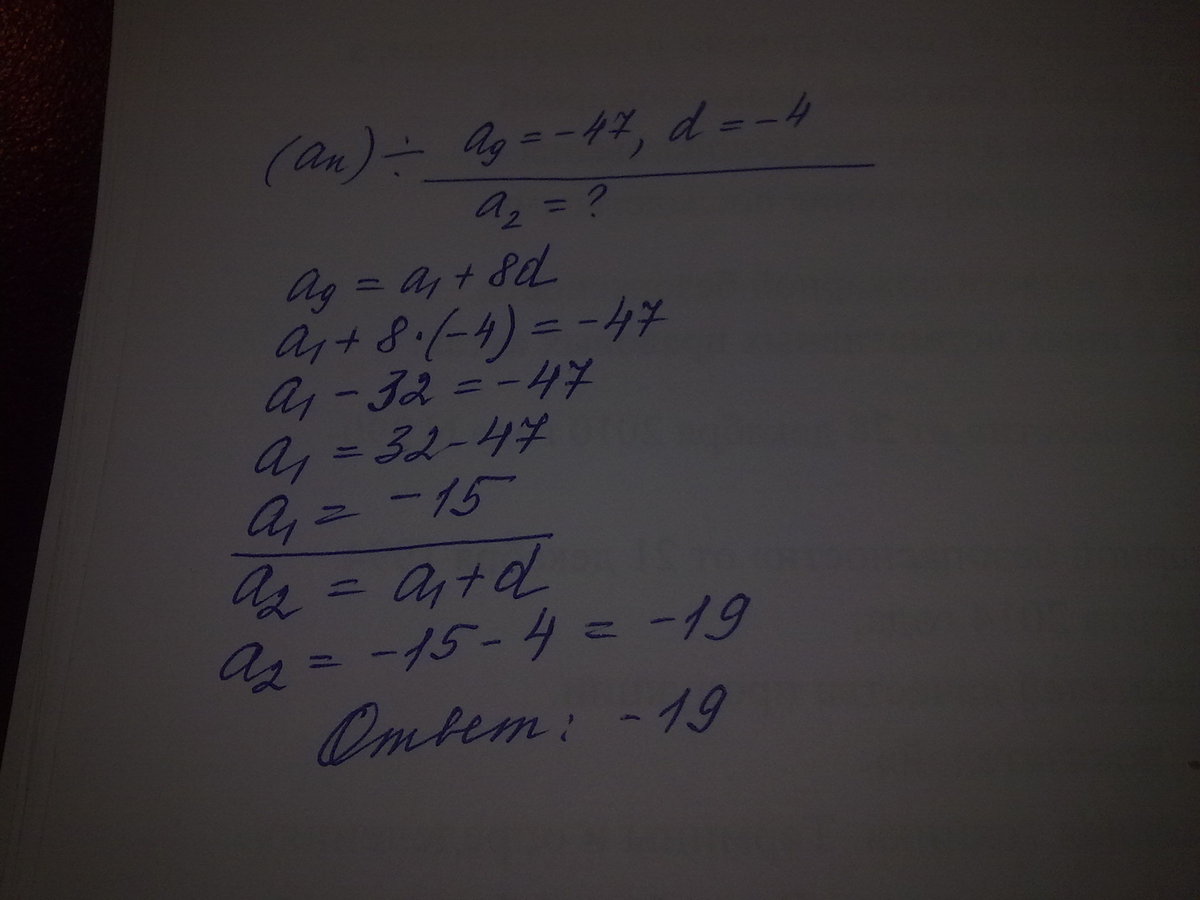 (an) ÷ a₉ = -47, d = -4
a₂ = ?
a₉ = a₁ + 8d
a₁ + 8·(-4) = -47
a₁ - 32 = -47
a₁ = 32 - 47
a₁ = -15
a₂ = a₁ + d
a₂ = -15 - 4 = -19
Ответ: -19